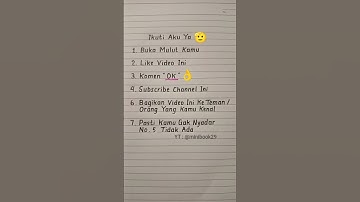 Ikuti Aku Ya
1. Buka Mulut Kamu
2. Like Video Ini
3. Komen "OK"
4. Subscribe Channel Ini
6. Bagikan Video Ini Ke Teman /
Orang Yang Kamu Kenal
7. Pasti Kamu Gak Nyadar
No. 5 Tidak Ada
YT : @minibook29